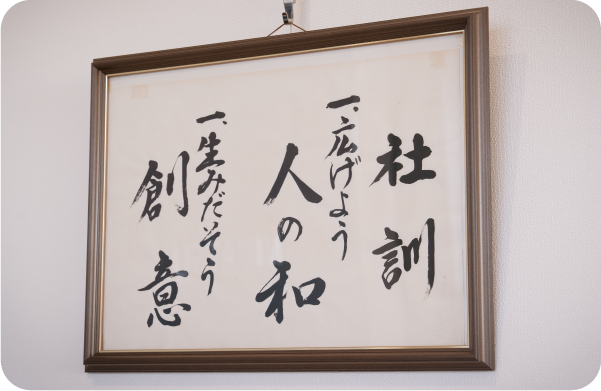 社訓
一、広げよう
人の和
一、生みだそう
創意